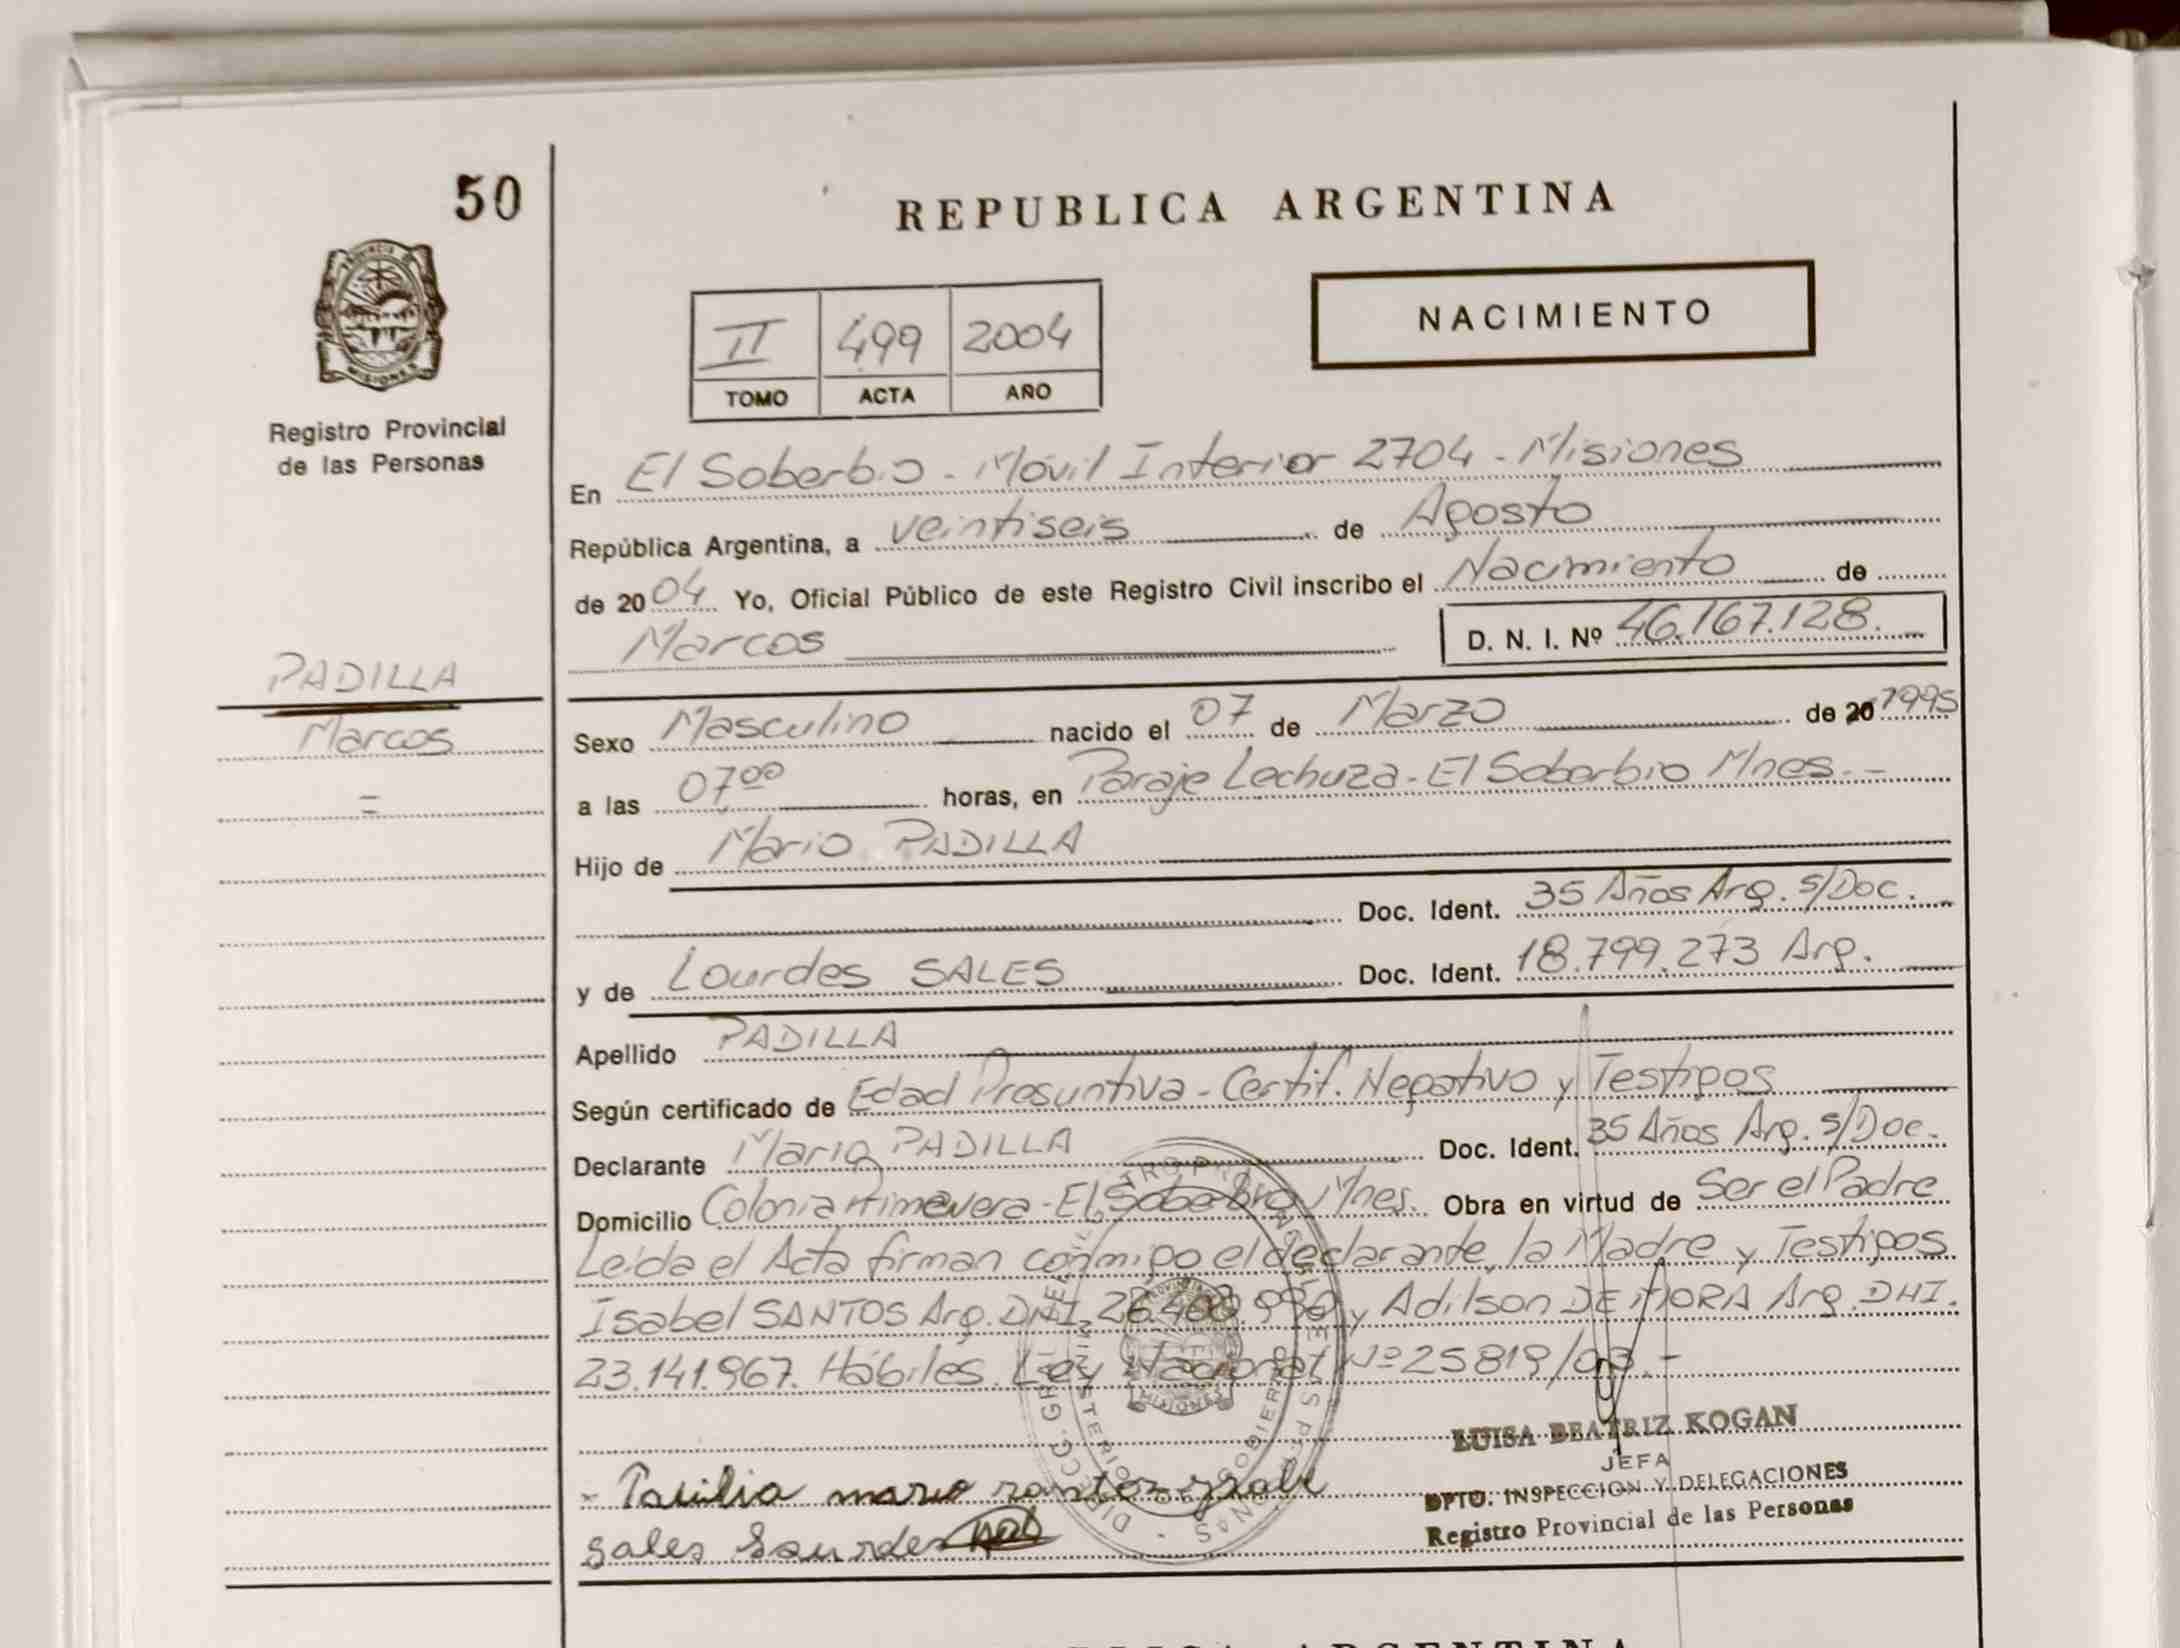 50
REPUBLICA ARGENTINA
PROVINCIA DE MISIONES
Registro Provincial
de las Personas
NACIMIENTO
II 499 2004
TOMO ACTA AÑO
En El Soberbio - Móvil Interior 2704 - Misiones
República Argentina, a veintiseis de Agosto
de 2004 Yo, Oficial Público de este Registro Civil inscribo el Nacimiento de
Marcos D. N. I. Nº 46.167.128.
PADILLA
Marcos
Sexo Masculino nacido el 07 de Marzo de 20 1995
a las 07⁰⁰ horas, en Paraje Lechuza - El Soberbio Mnes. -
Hijo de Mario PADILLA
Doc. Ident. 35 Años Arg. s/Doc.
y de Lourdes SALES Doc. Ident. 18.799.273 Arg.
Apellido PADILLA
Según certificado de Edad Presuntiva - Certif. Negativo y Testigos
Declarante Mario PADILLA Doc. Ident. 35 Años Arg. s/Doc.
Domicilio Colonia Primavera - El Soberbio Mnes. Obra en virtud de Ser el Padre
Leída el Acta firman conmigo el declarante, la Madre y Testigos
Isabel SANTOS Arg. DNI. y Adilson DE MORA Arg. DNI.
23.141.967. Hábiles. Ley Nacional Nº 25819/03. -
LUISA BEATRIZ KOGAN
JEFA
DPTO. INSPECCION Y DELEGACIONES
Registro Provincial de las Personas
- Padilia mario
sales Lourdes